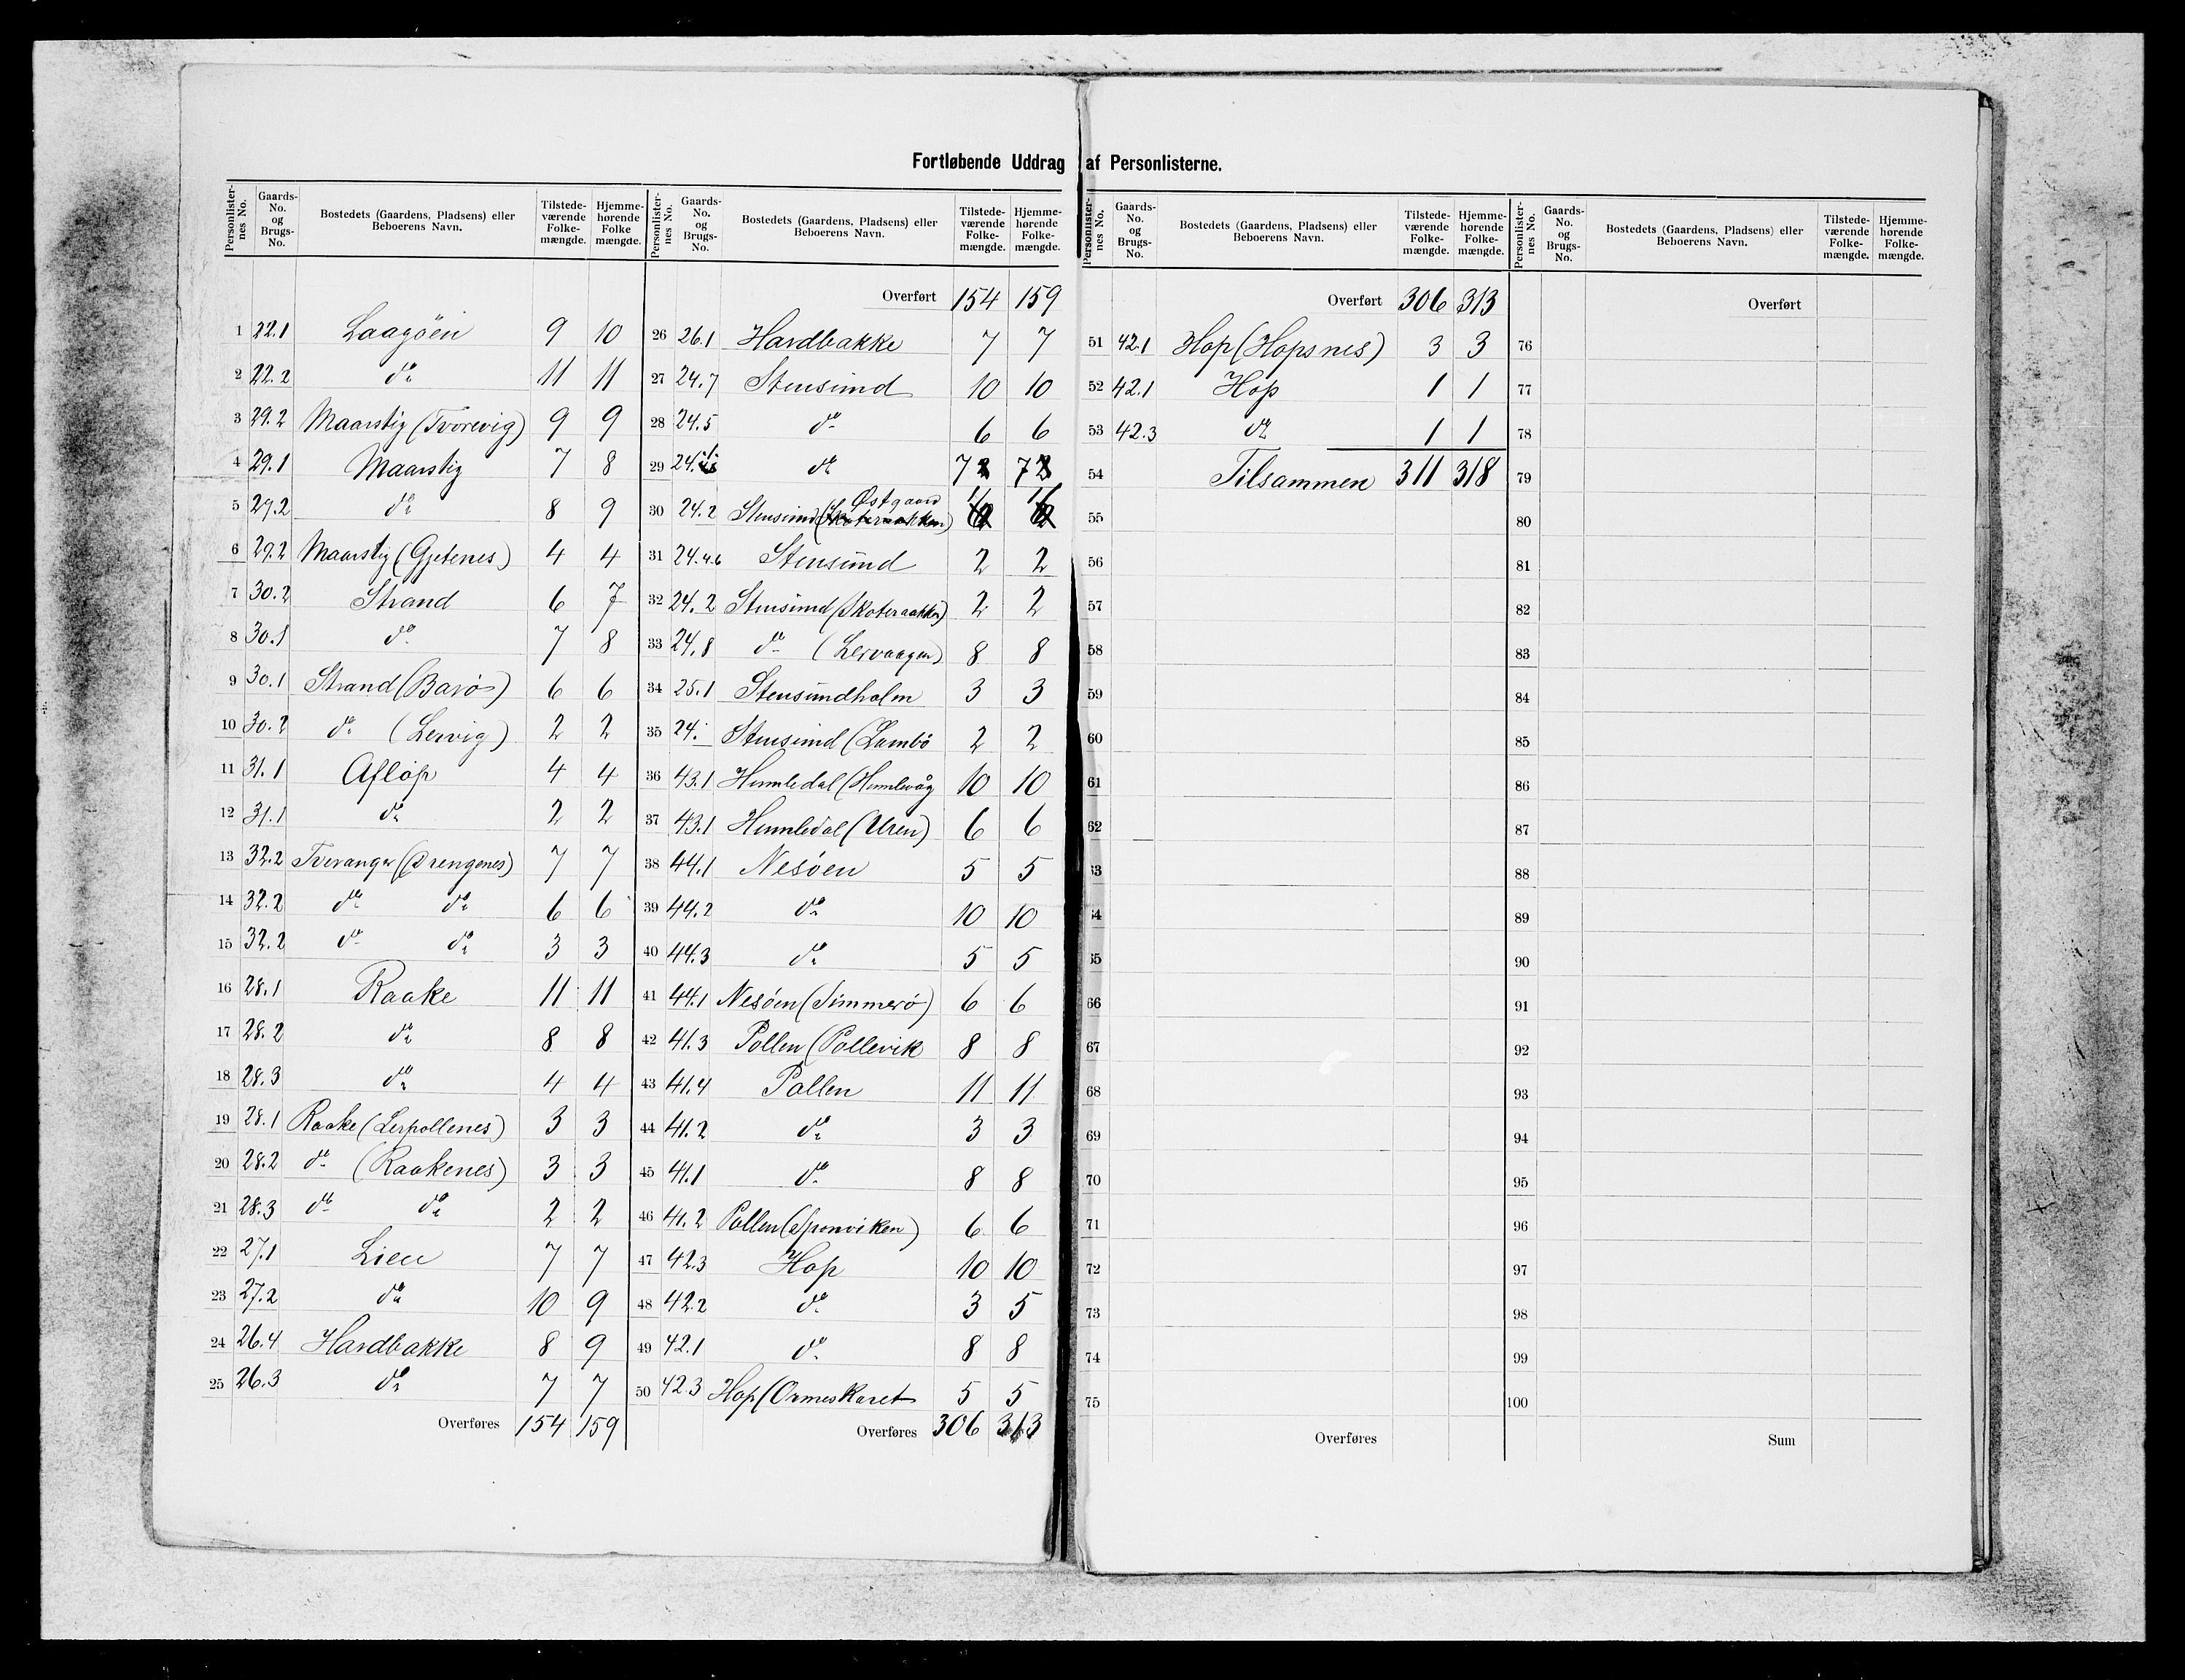 Fortløbende Uddrag af Personlisterne.
Personlisternes No. Gaards-No. og Brugs-No. Bostedets (Gaardens, Pladsens) eller Beboerens Navn. Tilstedeværende Folkemængde. Hjemmehørende Folkemængde.
1 22.1 Laagöen 9 10
2 22.2 do 11 11
3 29.2 Maarstig (Tvorevig) 9 9
4 29.1 Maarstig 7 8
5 29.2 do 8 9
6 29.2 Maarstig (Gjetenes) 4 4
7 30.2 Strand 6 7
8 30.1 do 7 8
9 30.1 Strand (Barö) 6 6
10 30.2 do (Lervig) 2 2
11 31.1 Aflöp 4 4
12 31.1 do 2 2
13 32.2 Tveranger (Drengenes) 7 7
14 32.2 do do 6 6
15 32.2 do do 3 3
16 28.1 Raake 11 11
17 28.2 do 8 8
18 28.3 do 4 4
19 28.1 Raake (Lerpollenes) 3 3
20 28.2 do (Raakenes) 3 3
21 28.3 do do 2 2
22 27.1 Lien 7 7
23 27.2 do 10 9
24 26.4 Hardbakke 8 9
25 26.3 do 7 7
Overføres 154 159
Personlisternes No. Gaards-No. og Brugs-No. Bostedets (Gaardens, Pladsens) eller Beboerens Navn. Tilstedeværende Folkemængde. Hjemmehørende Folkemængde.
Overført 154 159
26 26.1 Hardbakke 7 7
27 24.7 Stensund 10 10
28 24.5 do 6 6
29 24. do 7 7
30 24.2 Stensund (Østgaard
31 24.4.6 Stensund 2 2
32 24.2 Stensund (Skoteraakken) 2 2
33 24.8 do (Lervaagen) 8 8
34 25.1 Stensundholm 3 3
35 24.- Stensund (Lambö 2 2
36 43.1 Humledal (Humlevåg 10 10
37 43.1 Humledal (Uren) 6 6
38 44.1 Nesöen 5 5
39 44.2 do 10 10
40 44.3 do 5 5
41 44.1 Nesöen (Simmerö) 6 6
42 41.3 Pollen (Pollevik 8 8
43 41.4 Pollen 11 11
44 41.2 do 3 3
45 41.1 do 8 8
46 41.2 Pollen (Sponviken) 6 6
47 42.3 Hop 10 10
48 42.2 do 3 5
49 42.1 do 8 8
50 42.3 Hop (Ormeskaret 5 5
Overføres 306 313
Personlisternes No. Gaards-No. og Brugs-No. Bostedets (Gaardens, Pladsens) eller Beboerens Navn. Tilstedeværende Folkemængde. Hjemmehørende Folkemængde.
Overført 306 313
51 42.1 Hop (Hopsnes) 3 3
52 42.1 Hop 1 1
53 42.3 do 1 1
54 Tilsammen 311 318
55
56
57
58
59
60
61
62
63
64
65
66
67
68
69
70
71
72
73
74
75
Overføres
Personlisternes No. Gaards-No. og Brugs-No. Bostedets (Gaardens, Pladsens) eller Beboerens Navn. Tilstedeværende Folkemængde. Hjemmehørende Folkemængde.
Overført
76
77
78
79
80
81
82
83
84
85
86
87
88
89
90
91
92
93
94
95
96
97
98
99
100
Sum